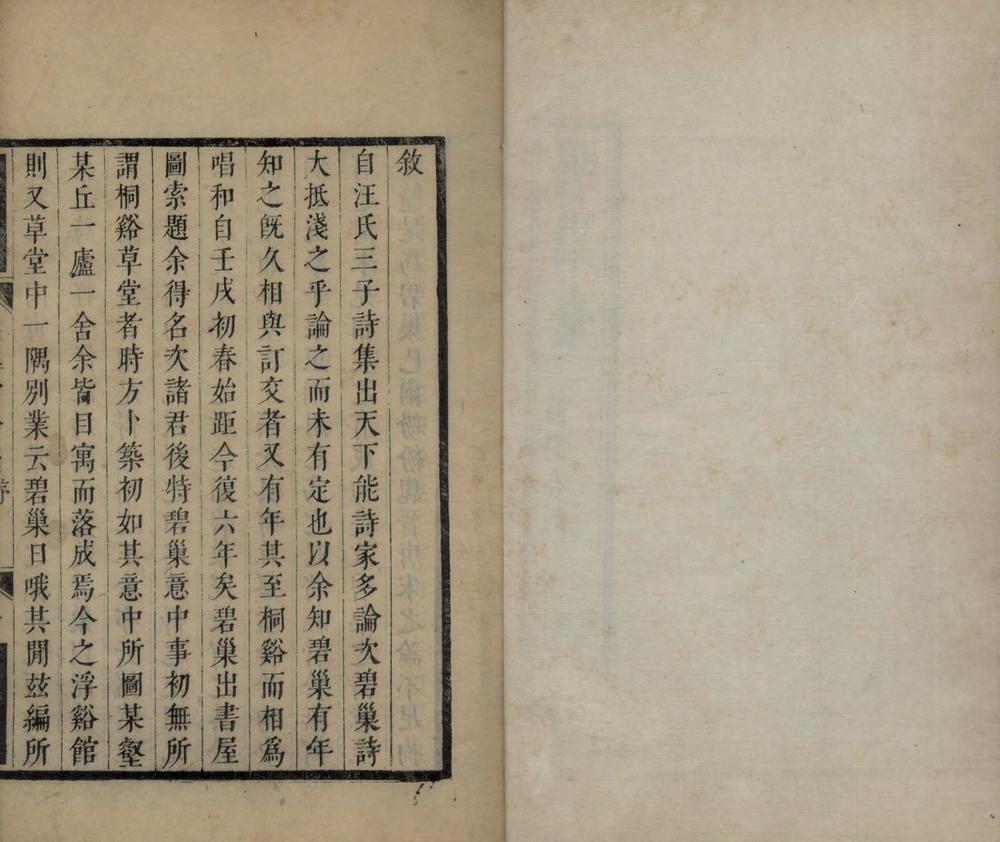 敘
自汪氏三子詩集出天下能詩家多論次碧巢詩
大抵淺之乎論之而未有定也以余知碧巢有年
知之旣久相與訂交者又有年其至桐谿而相爲
唱和自壬戌初春始距今復六年矣碧巢出書屋
圖索題余得名次諸君後特碧巢意中事初無所
謂桐谿草堂者時方卜築初如其意中所圖某壑
某丘一廬一舍余皆目寓而落成焉今之浮谿館
則又草堂中一隅別業云碧巢日哦其閒兹編所
序